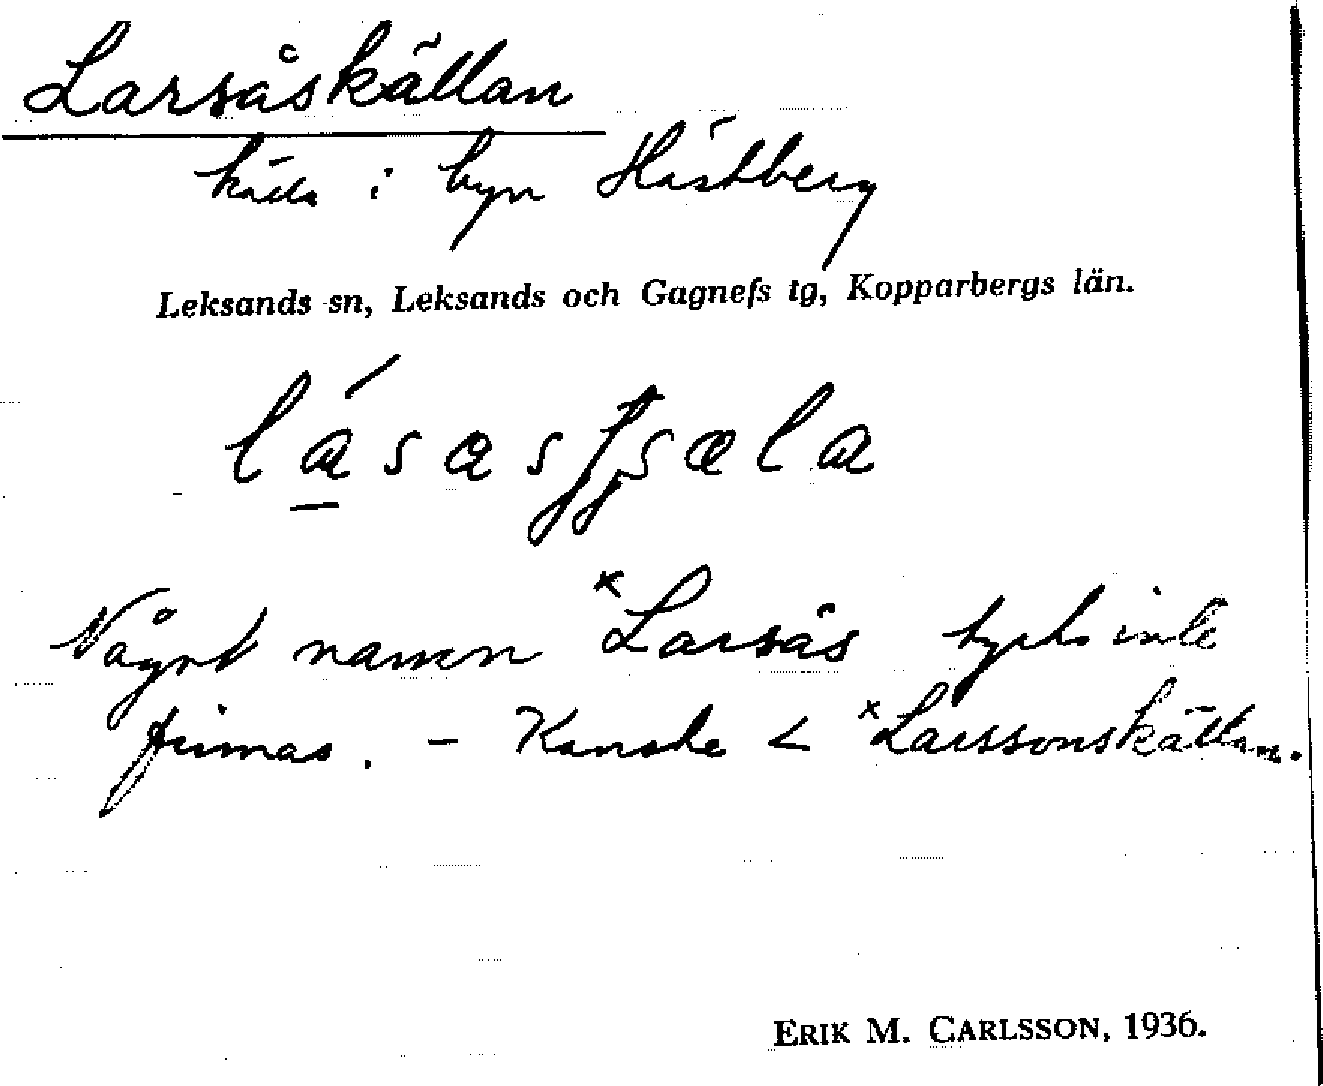 Larsåskällan
källa i byn Hästberg
Leksands sn, Leksands och Gagnefs tg, Kopparbergs län.
Något namn *Larsås tycks inte
finnas. – Kanske < *Larssonskällan.
ERIK M. CARLSSON, 1936.